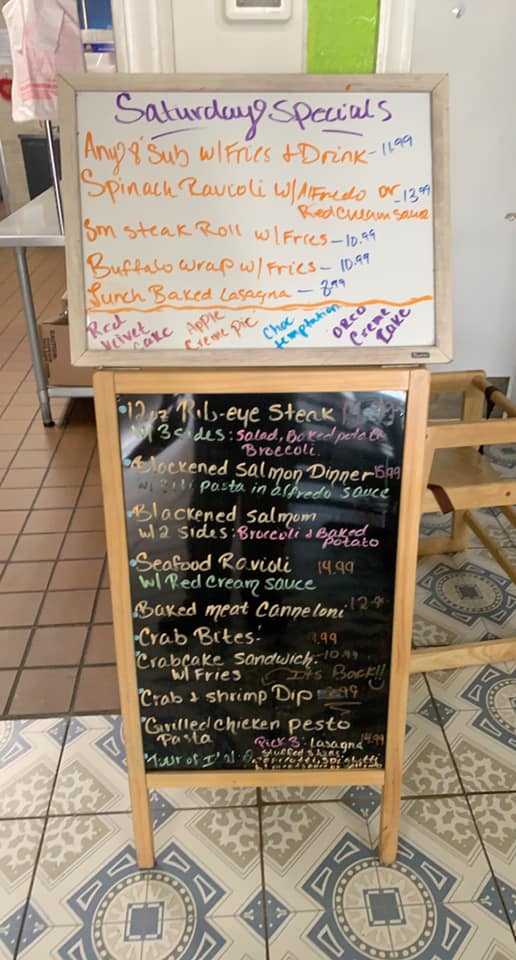 Saturday Specials
Any 8" Sub w/Fries & Drink - 11.99
Spinach Ravioli w/Alfredo or - 13.99
Red Cream Sauce
Sm Steak Roll w/Fries - 10.99
Buffalo Wrap w/Fries - 10.99
Lunch Baked Lasagna - 8.99
Red Velvet Cake
Apple Creme Pie
Choc Temptation
Oreo Creme Cake
12oz Rib-eye Steak
w/ 3 sides: Salad, Baked potato
Broccoli.
Blackened Salmon Dinner 15.99
pasta in alfredo sauce
Blackened Salmon
w/ 2 sides: Broccoli & Baked
potato
Seafood Ravioli 14.99
w/ Red Cream Sauce
Baked meat Canneloni
Crab Bites
Crabcake Sandwich. 10.99
w/ Fries Its Back!!
Crab & Shrimp Dip
Grilled Chicken pesto
Pasta 14.99
Pick 3: Lasagna